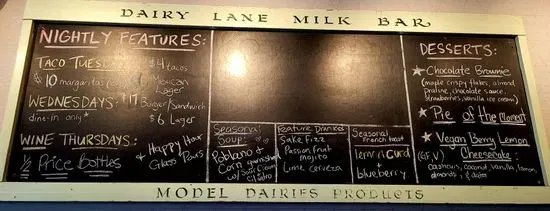 DAIRY LANE MILK BAR
NIGHTLY FEATURES:
TACO TUESDAY $4 tacos
$10 margaritas Mexican Lager
WEDNESDAYS: $17 Burger/Sandwich
dine-in only* $6 Lager
WINE THURSDAYS:
1/2 Price Bottles
& Happy Hour
Glass Pours
Seasonal
Soup:
Poblano &
Corn
w/ Sour Cream
Feature Drinks:
Sake Fizz
Passion fruit
mojito
Lime cerveza
Seasonal
french toast
lemon curd
blueberry
DESSERTS:
Chocolate Brownie
(maple crispy flakes, almond
praline, chocolate sauce,
strawberries, vanilla ice cream)
Pie of the Moment
Vegan Berry Lemon
(GF V) Cheesecake:
cashews, coconut, vanilla, lemon,
almonds, & dates
MODEL DAIRIES PRODUCTS